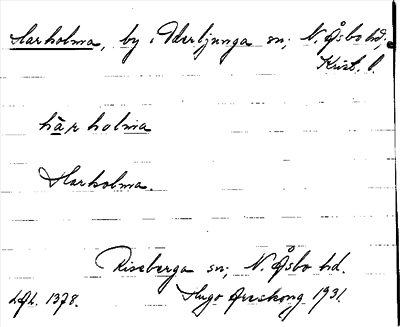 Harholma, by i Åderljunga sn; N. Åsbo hd;
Krist. l.
härholma
Harholma.
Riseberga sn; N. Åsbo hd.
Hugo Areskog 1931.